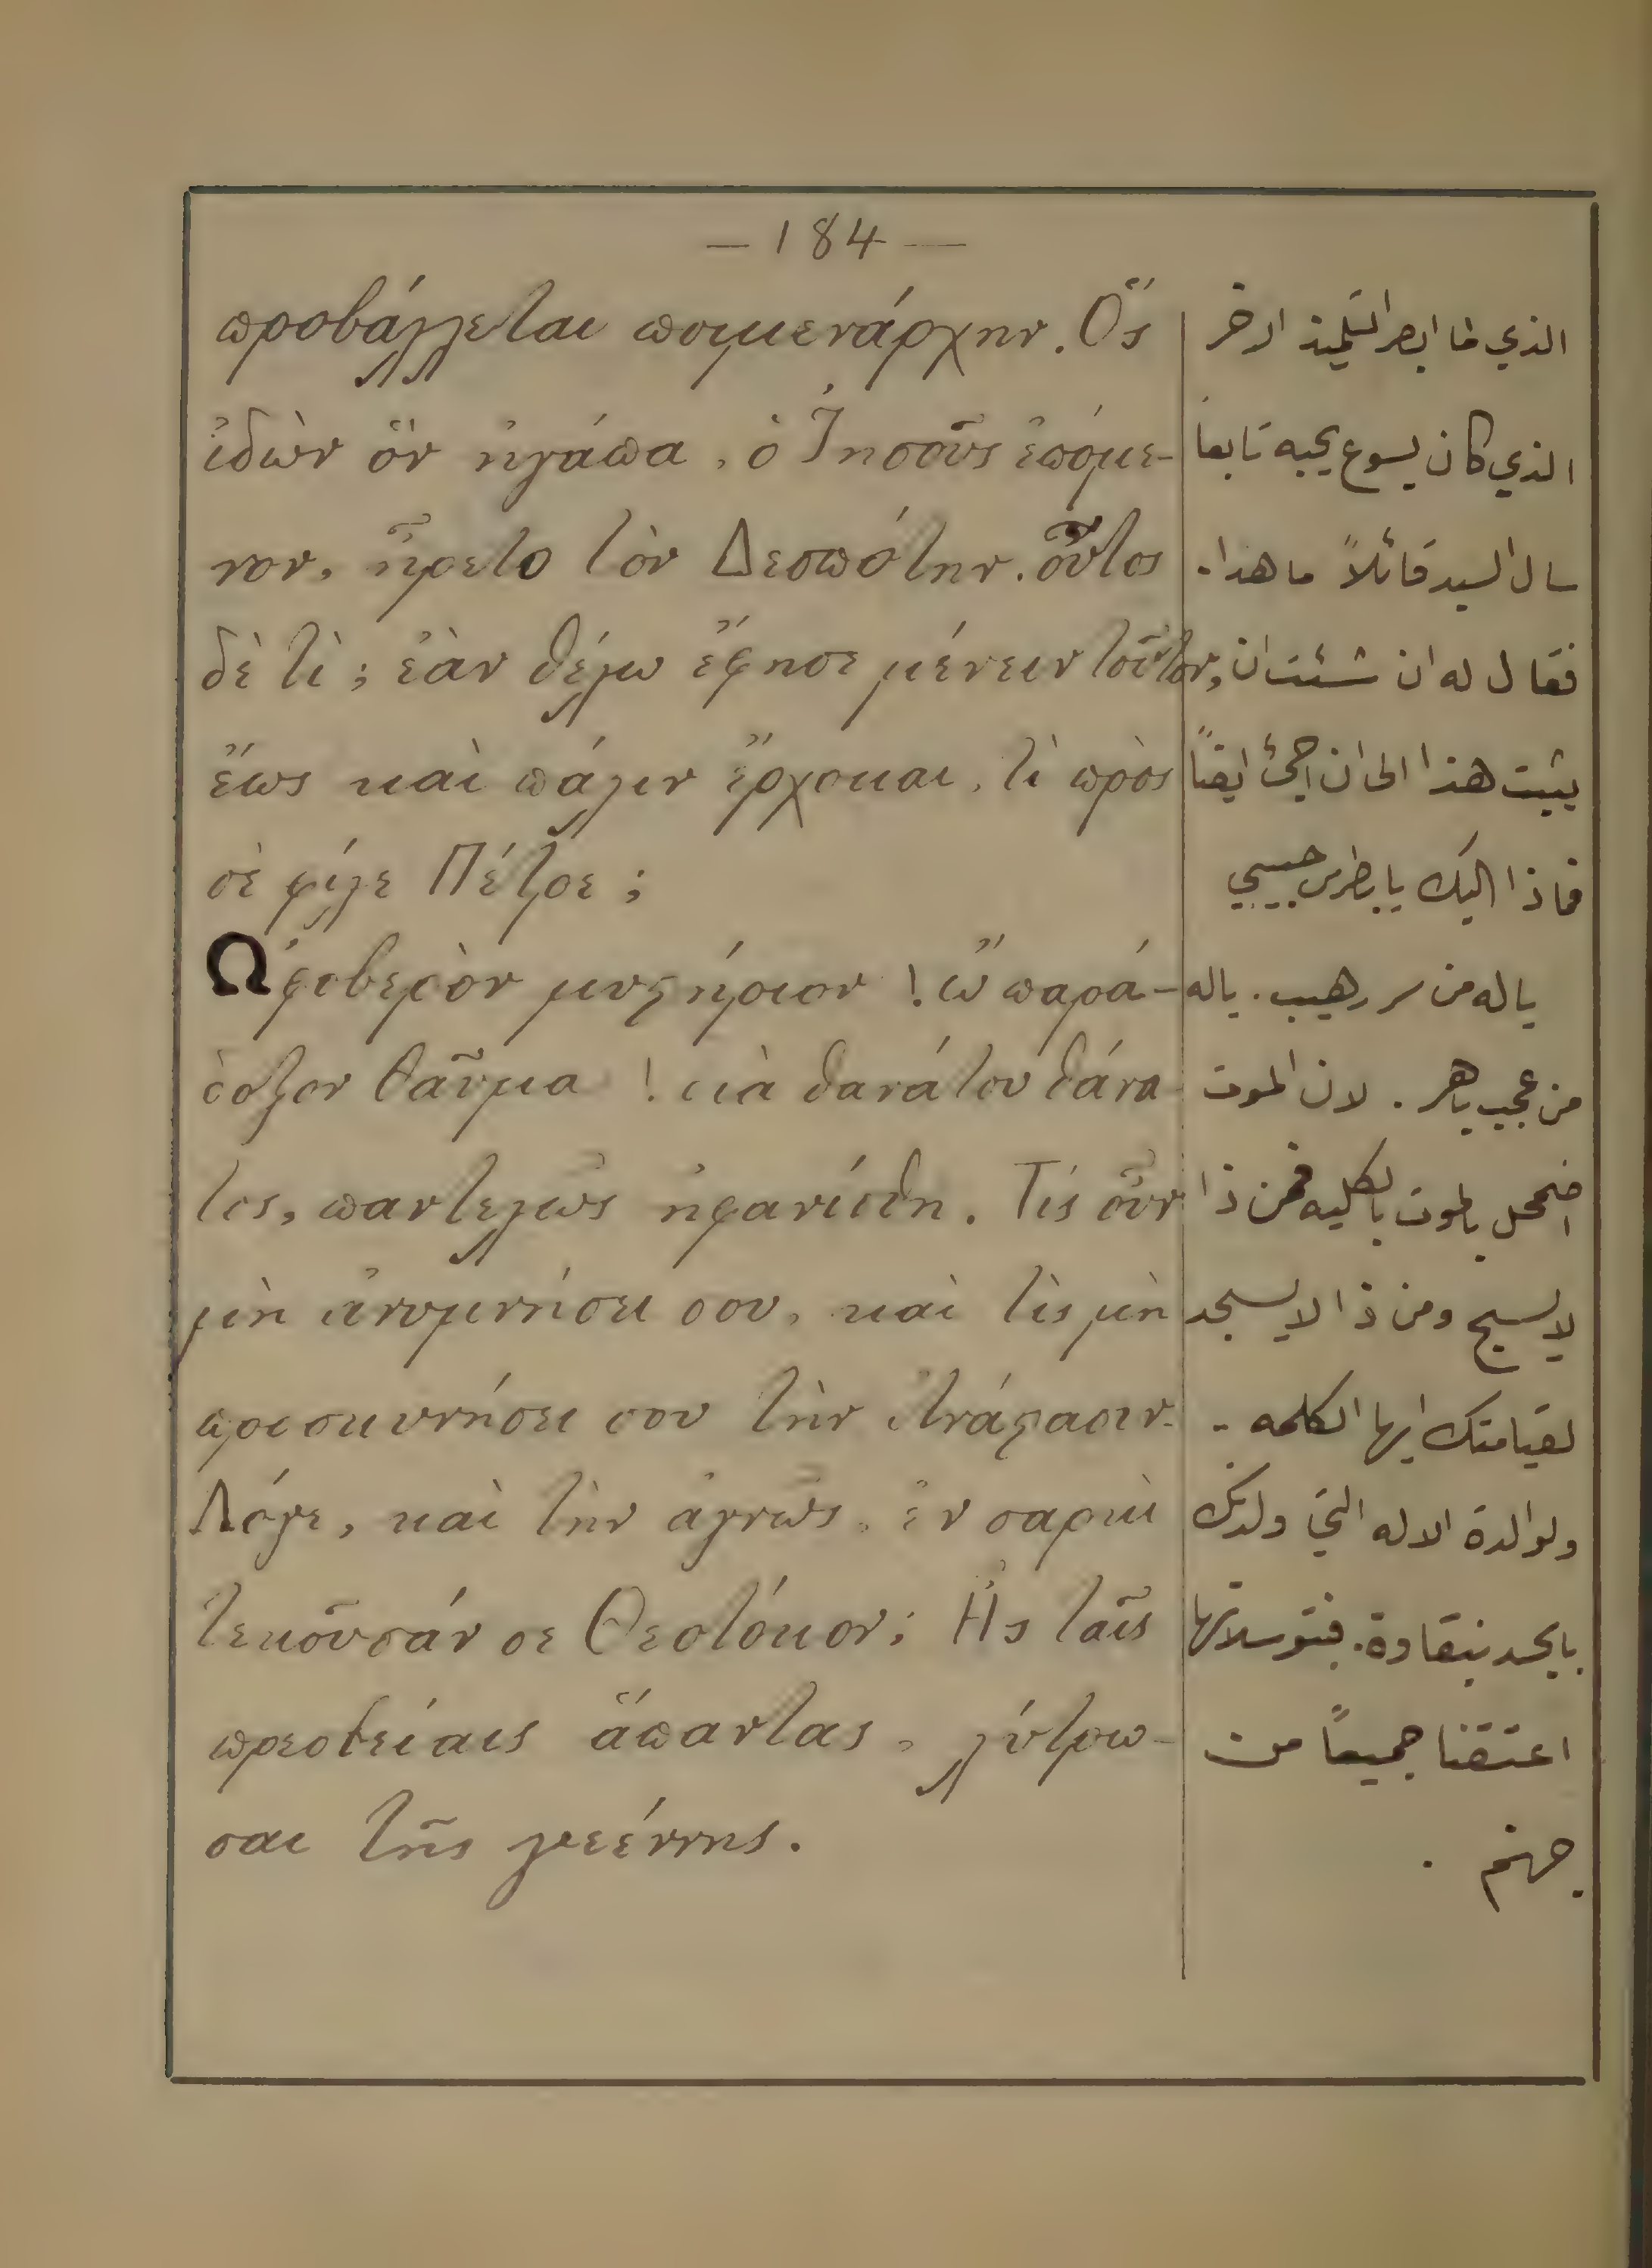 — 184 —
προβάλλεται ποιμενάρχην. Ὅς
ἰδὼν ὃν ἠγάπα, ὁ Ἰησοῦς ἑπόμε-
νον, ἤρετο τὸν Δεσπότην. οὗτος
δὲ τὶ; ἐὰν θέλω ἔφησε μένειν τοῦτον,
ἕως καὶ πάλιν ἔρχομαι, τὶ πρὸς
σὲ φίλε Πέτρε;
Ω φοβερὸν μυστήριον! ὢ παρά-
δοξον θαῦμα! διὰ θανάτου θάνα
τος, παντελῶς ἠφανίσθη. Τίς οὖν
μὴ ἀνυμνήσει σου, καὶ τὶς μὴ
προσκυνήσει σου τὴν Ἀνάστασιν
Λόγε, καὶ τὴν ἁγνῶς, ἐν σαρκὶ
τεκοῦσάν σε Θεοτόκον; Ἧς ταῖς
πρεσβείαις ἅπαντας, λύτρω-
σαι τῆς γεέννης.
الذي لما ابصر التلميذ الاخر
الذي كان يسوع يحبه تابعا
سال السيد قائلاً ما هذا.
فقال له ان شئت ان
يثبت هذا الى ان اجئ ايضاً
فماذا اليك يا بطرس حبيبي
ياله من سر رهيب. ياله
من عجيب باهر. لان الموت
اضمحل بالموت بالكليه فمن ذا
لا يسبح ومن ذا لا يسجد
لقيامتك ايها الكلمه..
ولوالدة الاله التي ولدتك
بالجسد بنقاوة. فبتوسلاتها
اعتقنا جميعاً من
جهنم .